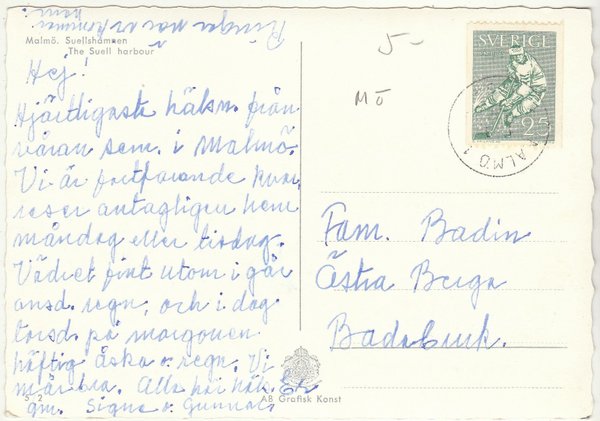 Ringer när vi kommer
hem.
Malmö. Suellshamnen
The Suell harbour
Hej!
Hjärtligaste hälsn. från
våran sem. i Malmö.
Vi är fortfarande kvar,
reser antagligen hem
måndag eller tisdag.
Vädret fint utom i går
onsd. regn, och i dag
torsd. på morgonen
häftig åska o. regn. Vi
mår bra. Alla här häls. Er
gm. Signe o. Gunnar
S 2
5-
Mö
SVERIGE
25
MALMÖ 1
Fam. Badin
Östra Berga
Badelunk.
AB Grafisk Konst